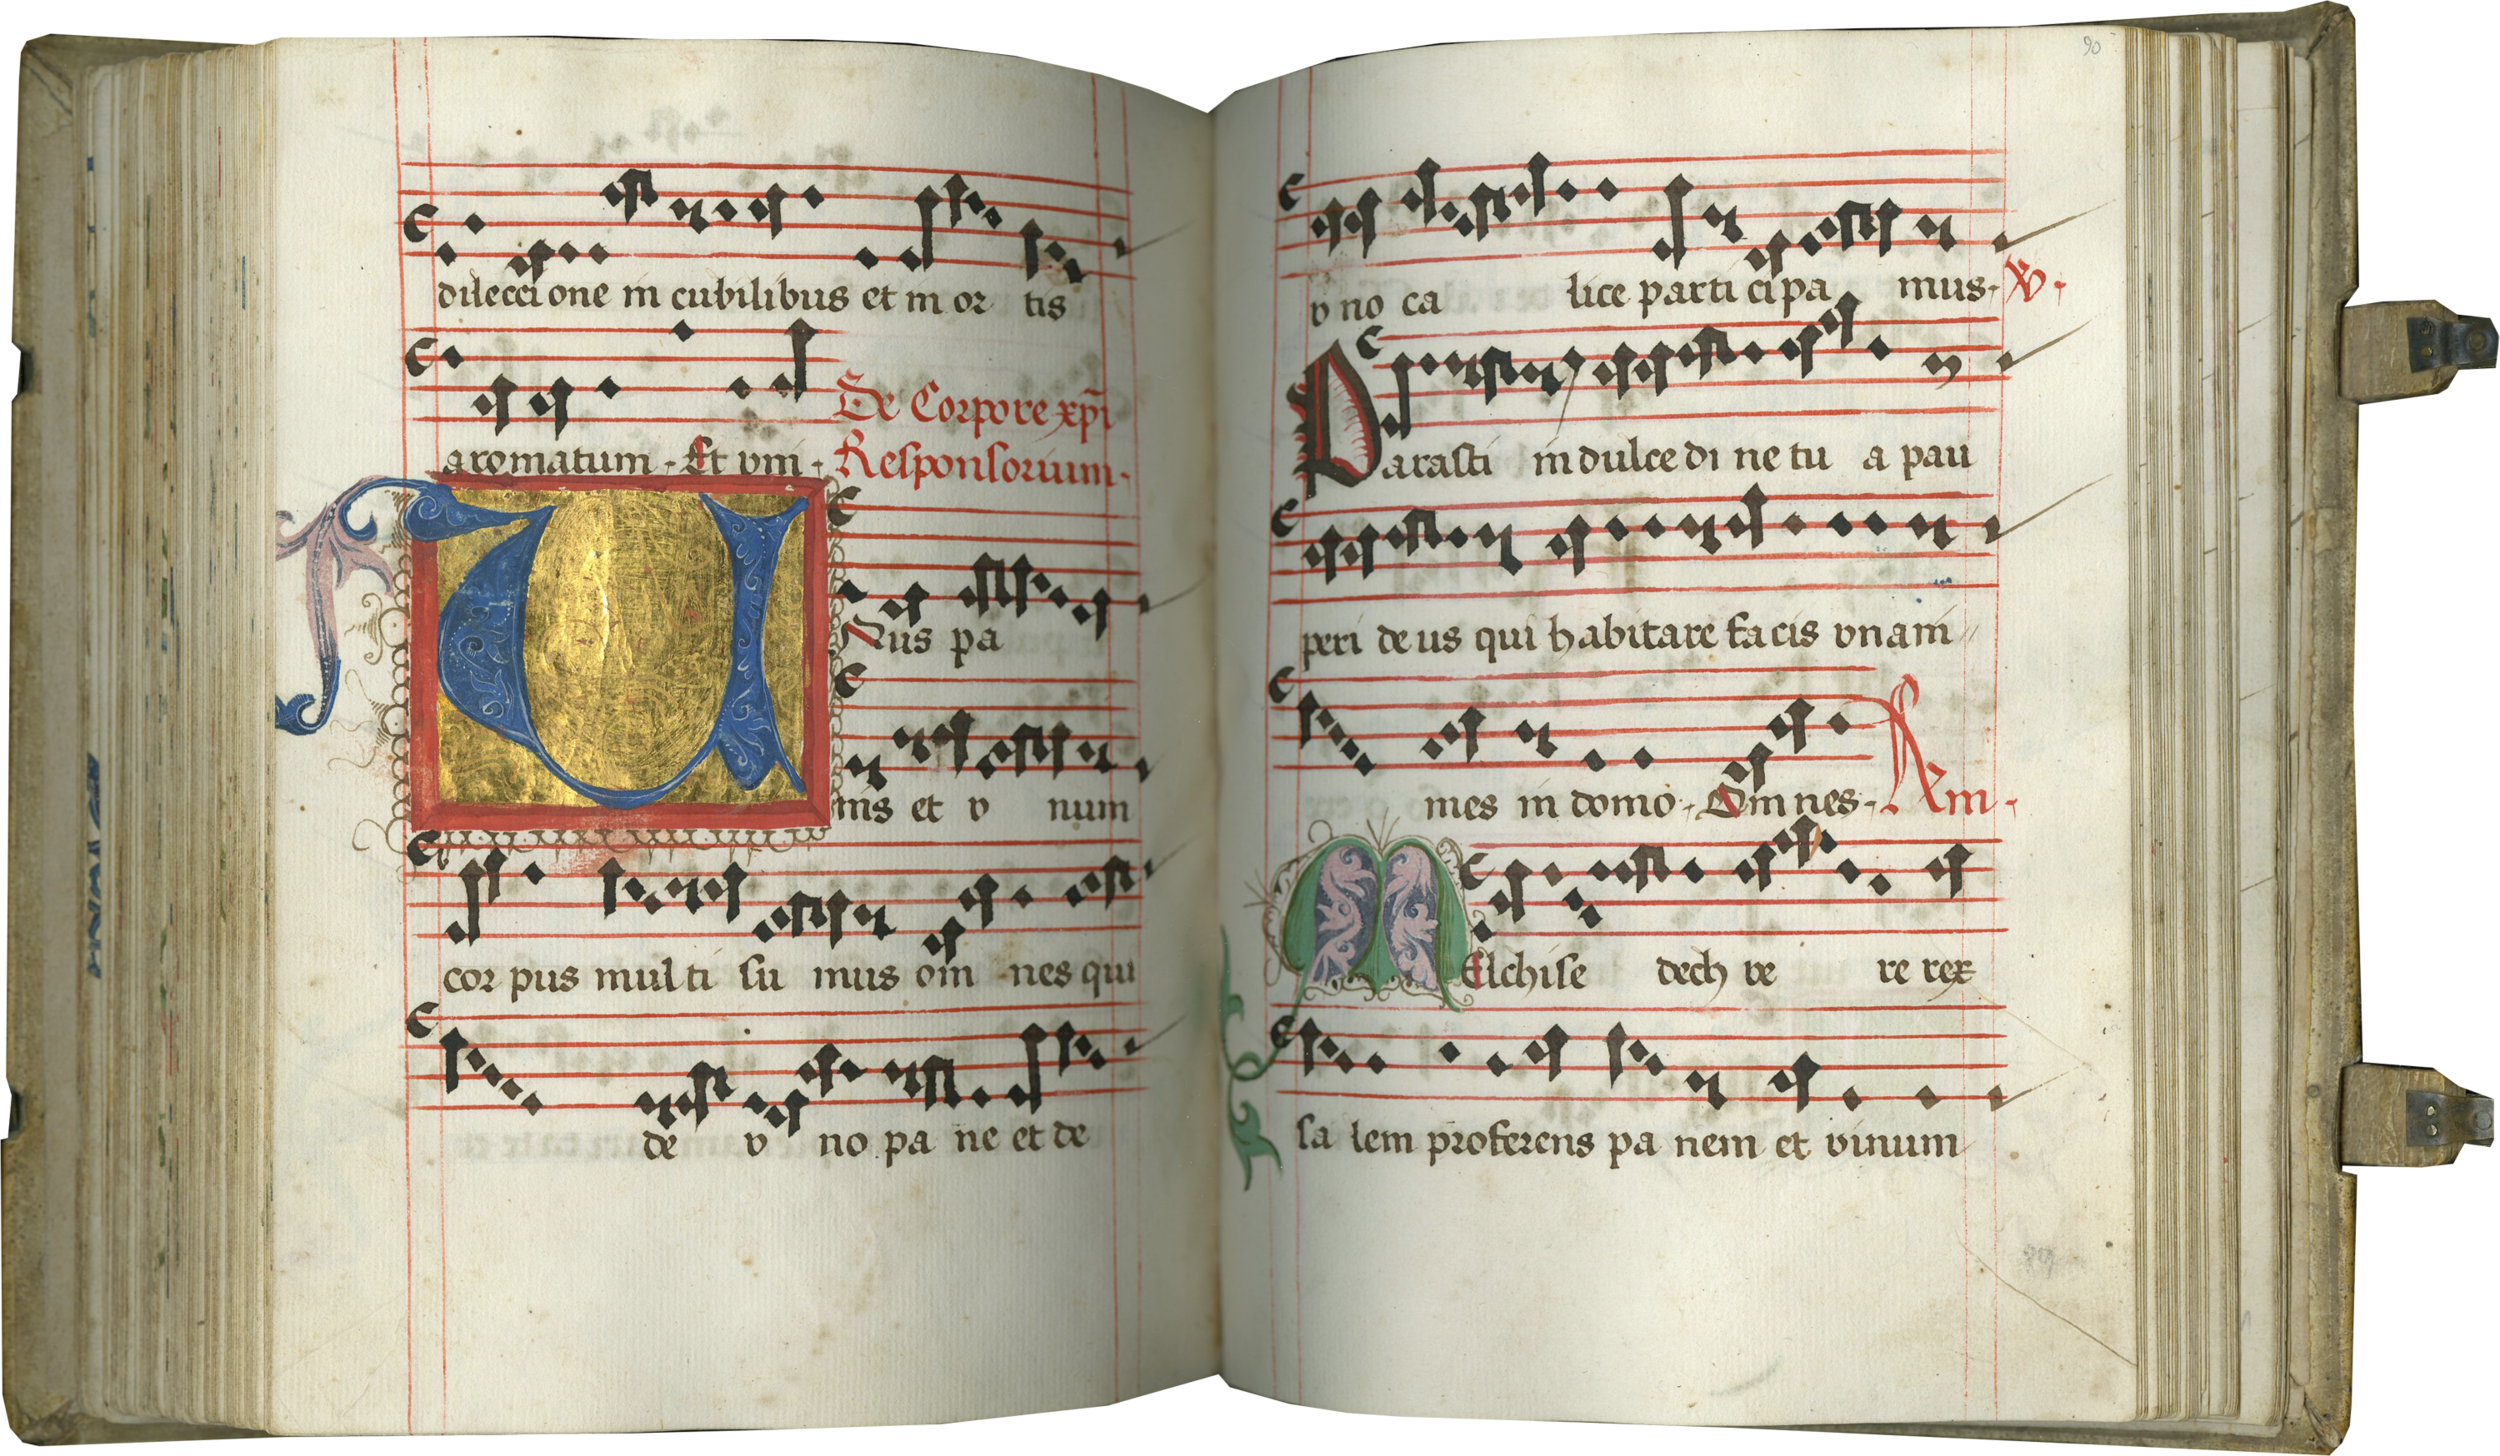 dileccione in cubilibus et in or tis
aromatum. Et vni.
De Corpore xp̄i
Responsorium.
UNus pa
nis et v num
cor pus multi su mus om nes qui
de v no pa ne et de
90
v no ca lice parti cipa mus. V.
Parasti in dulce di ne tu a pau
peri deus qui habitare facis vnani
mes in domo. Omnes. Am.
MElchise dech ve re rex
sa lem proferens pa nem et vinum